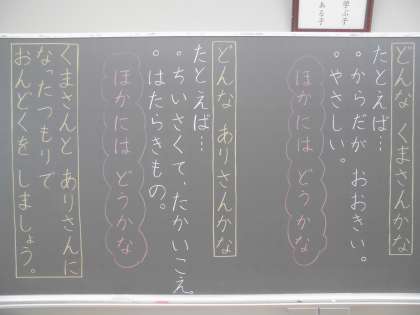 学ぶ子
ある子
どんな くまさんかな
たとえば…
。からだが おおきい。
。やさしい。
ほかには どうかな
どんな ありさんかな
たとえば…
。ちいさくて、たかいこえ
。はたらきもの。
ほかには どうかな
くまさんと ありさんに
なったつもりで
おんどくを しましょう。